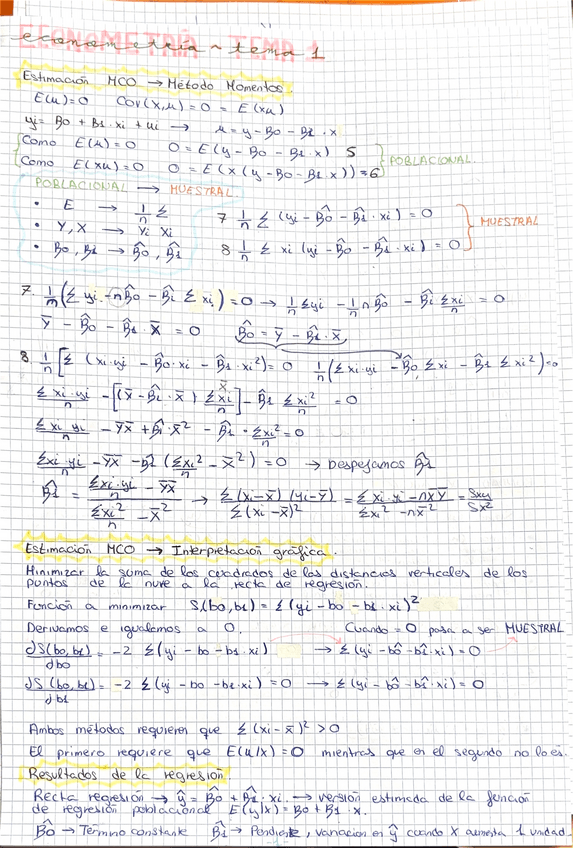 econometría ~ tema 1
Estimación MCO → Método Momentos
E(u)=0 Cov(x,u)=0 = E(xu)
yi = B0 + B1·xi + ui → u = y - B0 - B1·x
Como E(u)=0 0=E(y - B0 - B1·x) 5
Como E(xu)=0 0=E(x(y - B0 - B1·x))=6 POBLACIONAL.
POBLACIONAL → MUESTRAL.
• E → 1/n Σ
• Y, X → Yi Xi
• B0, B1 → B̂0, B̂1
7 1/n Σ (yi - B̂0 - B̂1·xi) = 0
8 1/n Σ xi (yi - B̂0 - B̂1·xi) = 0 MUESTRAL
7. 1/n (Σ yi - nB̂0 - B̂1 Σ xi) = 0 → 1/n Σyi - 1/n nB̂0 - B̂1 Σxi/n = 0
Y̅ - B̂0 - B̂1·X̅ = 0 B̂0 = Y̅ - B̂1·X̅
8. 1/n [Σ (xi·yi - B̂0·xi - B̂1·xi²) = 0 1/n (Σ xi·yi - B̂0 Σxi - B̂1 Σxi²) = 0
Σxi·yi/n - [(Y̅ - B̂1·X̅) Σxi/n] - B̂1 Σxi²/n = 0
Σxi yi/n - Y̅X̅ + B̂1·X̅² - B̂1·Σxi²/n = 0
Σxi·yi/n - Y̅X̅ - B̂1 (Σxi²/n - X̅²) = 0 → Despejamos B̂1
B̂1 = (Σxi·yi/n - Y̅X̅)/(Σxi²/n - X̅²) → Σ(xi-x̅)(yi-y̅)/Σ(xi-x̅)² = (Σxi·yi - nX̅Y̅)/(Σxi² - nX̅²) = Sxy/Sx²
Estimación MCO → Interpretación gráfica.
Minimizar la suma de los cuadrados de las distancias verticales de los
puntos de la nuve a la recta de regresión.
Función a minimizar S(b0,b1) = Σ(yi - b0 - b1·xi)²
Derivamos e igualamos a 0. Cuando = 0 pasa a ser MUESTRAL
dS(b0,b1)/db0 = -2 Σ(yi - b0 - b1·xi) → Σ(yi - b̂0 - b̂1·xi) = 0
dS(b0,b1)/db1 = -2 Σ(yi - b0 - b1·xi) = 0 → Σ(yi - b̂0 - b̂1·xi) = 0
Ambos métodos requieren que Σ(xi - x̅)² > 0
El primero requiere que E(u/x) = 0 mientras que en el segundo no lo es.
Resultados de la regresión
Recta regresión → ŷ = B̂0 + B̂1·xi. → versión estimada de la función
de regresión poblacional E(y|x) = B0 + B1·x.
B̂0 → Término constante B̂1 → Pendiente, variación en ŷ cuando X aumenta 1 unidad